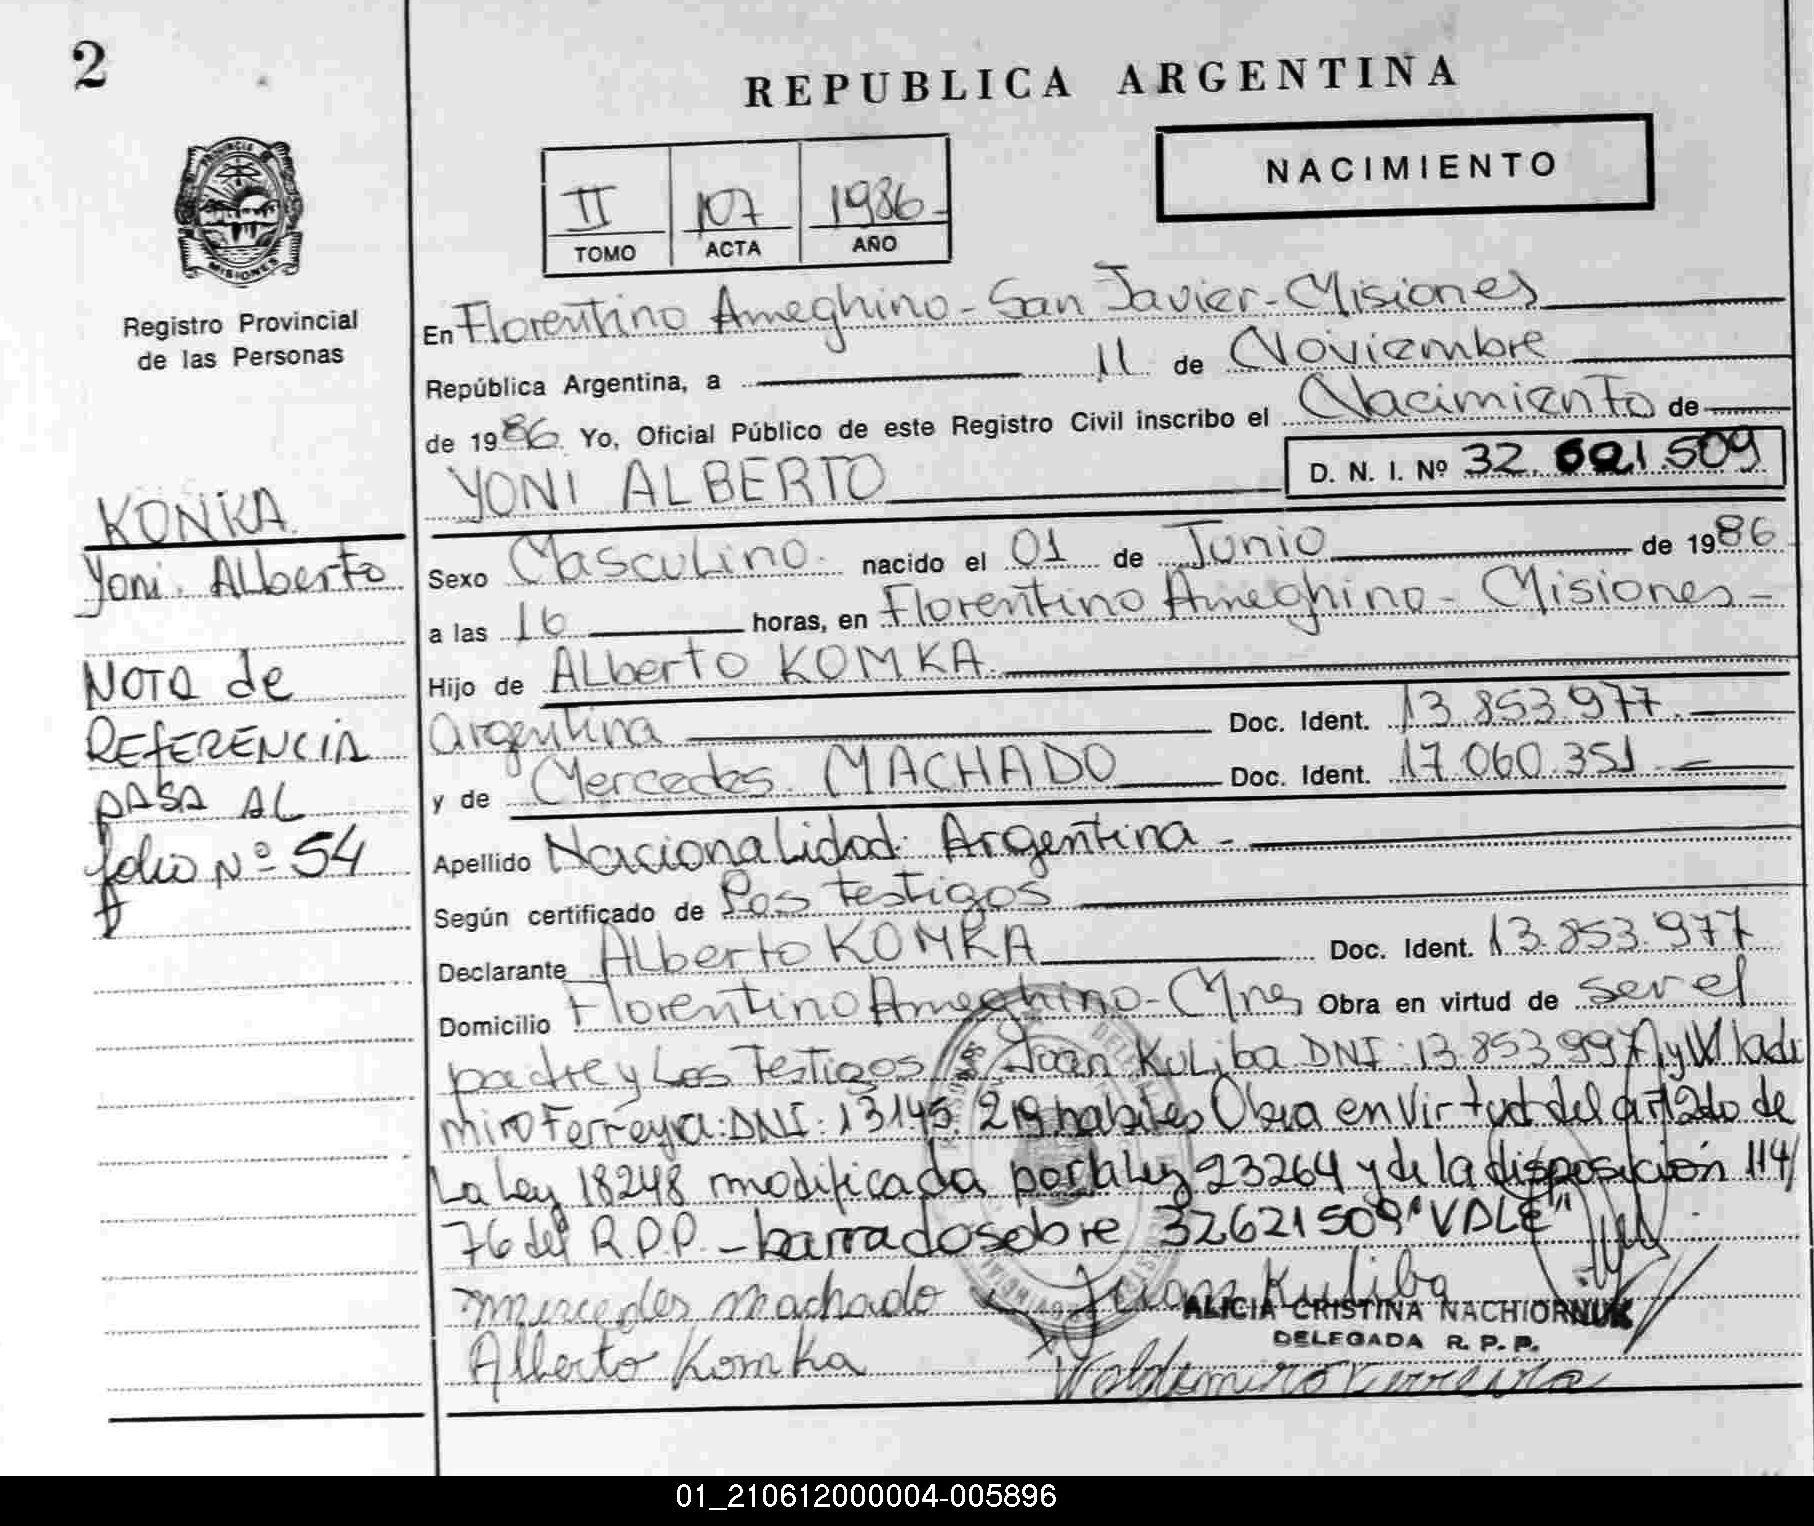 2
REPUBLICA ARGENTINA
NACIMIENTO
II 107 1986-
TOMO ACTA AÑO
PROVINCIA DE
MISIONES
Registro Provincial
de las Personas
En Florentino Ameghino - San Javier - Misiones
República Argentina, a 11 de Noviembre
de 1986. Yo, Oficial Público de este Registro Civil inscribo el Nacimiento de
YONI ALBERTO
D. N. I. Nº 32.621.509
KONKA.
Yoni. Alberto
NOTA de
REFERENCIA
PASA AL
folio Nº 54
Sexo Masculino. nacido el 01 de Junio de 1986
a las 16 horas, en Florentino Ameghino - Misiones -
Hijo de Alberto KOMKA.
Argentina Doc. Ident. 13.853.977.
y de Mercedes MACHADO Doc. Ident. 17.060.351
Apellido Nacionalidad: Argentina -
Según certificado de Los testigos
Declarante Alberto KOMKA Doc. Ident. 13.853.977
Domicilio Florentino Ameghino - Mnes Obra en virtud de ser el
padre y Los Testigos Juan Kuliba DNI: 13.853.997 y Wladi
miro Ferreyra: DNI: 13145.219 habiles Obra en virtud del art 2do de
La Ley 18248 modificada por la ley 23264 y de la disposicion 114/
76 del R.P.P. - barrado sobre 32621509 "VALE"
Mercedes Machado Juan Kuliba
ALICIA CRISTINA NACHIORNUK
DELEGADA R. P. P.
Alberto Komka Waldemiro Ferreira
01_210612000004-005896